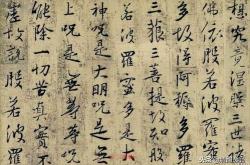 想究竟涅槃三世
佛依般若波羅蜜
多故得阿耨多羅
三藐三菩提故知般
若波羅蜜多是大
神咒是大明咒是無
上咒是無等等咒
能除一切苦真實不
虛故說般若波羅